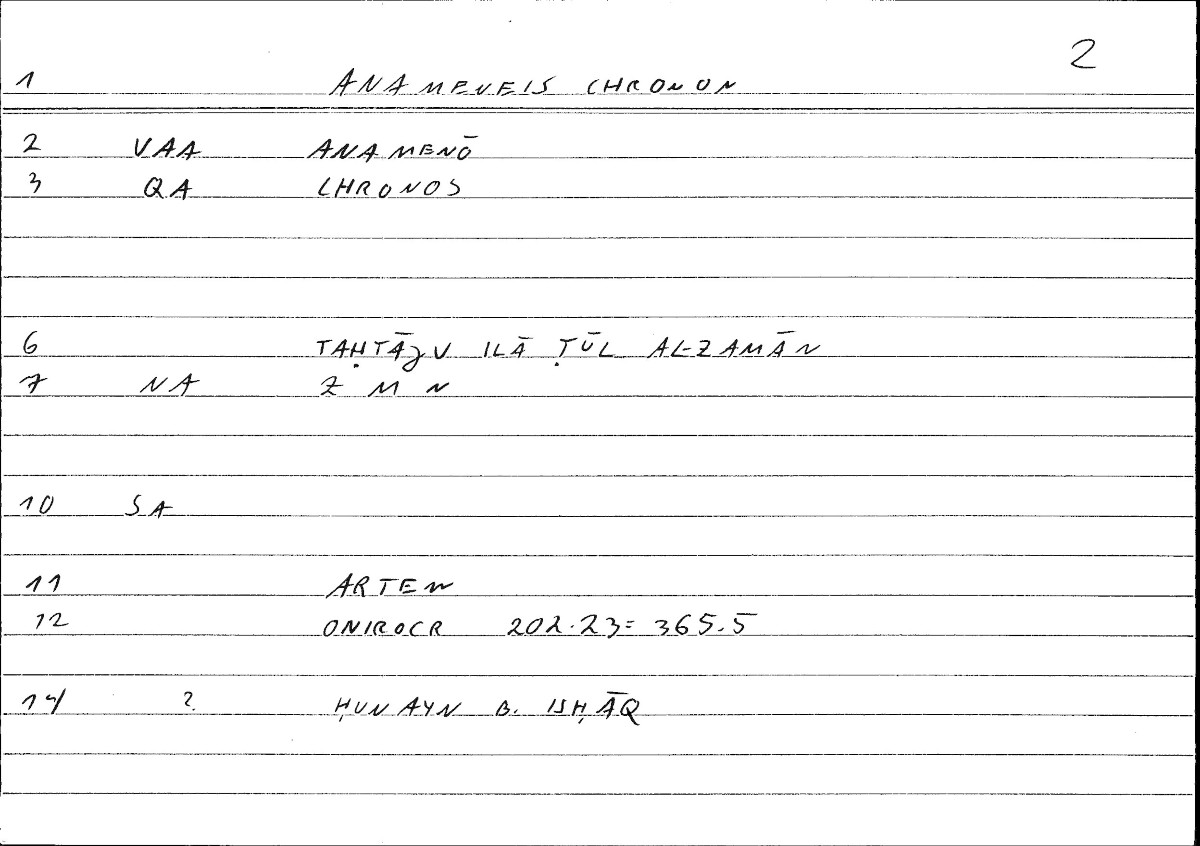 2
1 ANAMENEIS CHRONON
2 VAA ANAMENŌ
3 QA CHRONOS
6 TAḤTĀJU ILĀ ṬŪL AL-ZAMĀN
7 NA Z M N
10 SA
11 ARTEM
12 ONIROCR 202.23= 365.5
14 ? ḤUNAYN B. ISḤĀQ